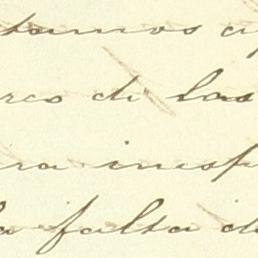 tamos a
rco de las
ra inesp
la falta de